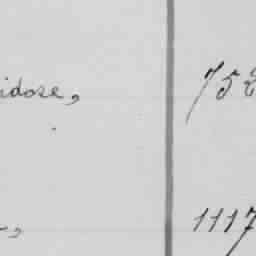 idore, 752
1117